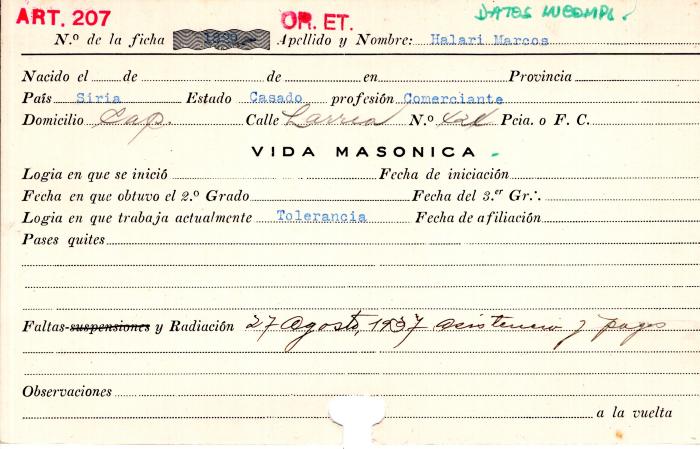 ART. 207 OR. ET. DATOS INCOMPL.
N.º de la ficha Apellido y Nombre: Halari Marcos
Nacido el de de en Provincia
País Siria Estado Casado profesión Comerciante
Domicilio Cap. Calle Larrea N.º 421 Pcia. o F. C.
VIDA MASONICA
Logia en que se inició Fecha de iniciación
Fecha en que obtuvo el 2.º Grado Fecha del 3.er Gr∴
Logia en que trabaja actualmente Tolerancia Fecha de afiliación
Pases quites
Faltas-suspensiones y Radiación 27 Agosto, 1937 asistencia y pagos
Observaciones
a la vuelta